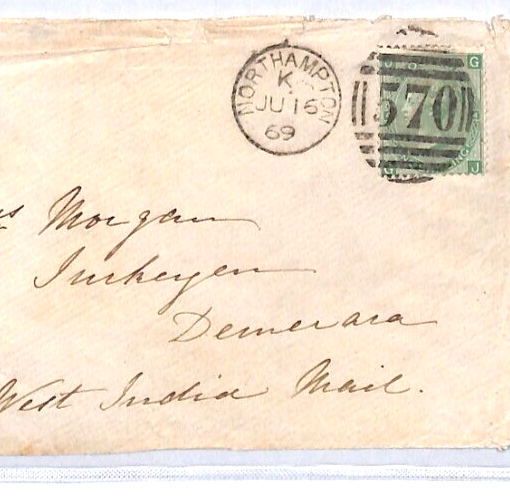 NORTHAMPTON
K
JU 16
69
570
G
G J
Morgan
Demerara
West India Mail.